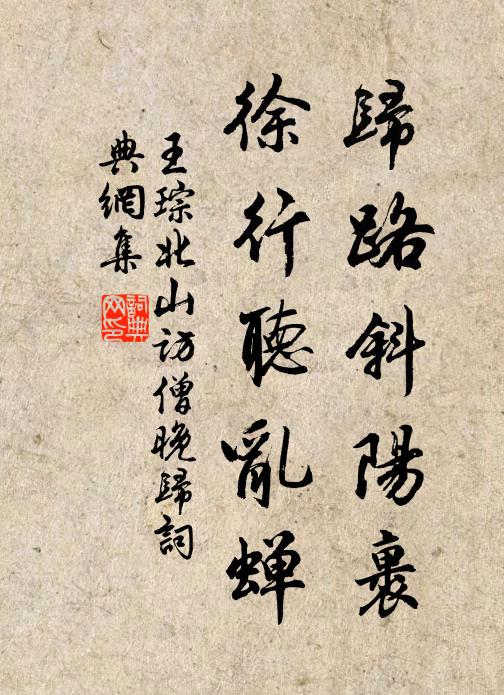 歸路斜陽裹
徐行聽亂蟬
王琮北山訪僧晚歸詞
典網集
詞典網印